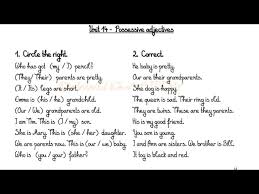 Unit 14 - Possessive adjectives
1. Circle the right.
Who has got (my / I) pencil?
(They / Their) parents are pretty.
(It / Its) legs are short.
Emma is (his / he) grandchild.
(Our / We) grandparents are old.
I am Tim. This is (I / my) dog.
She is Mary. This is (she / her) daughter.
We are parents now. This is (our / we) baby.
Who is (you / your) father?
2. Correct.
He baby is pretty.
Our are their grandparents.
She dog is happy.
The queen is sad. Their ring is old.
They are twins. These is they parents.
His is my good friend.
You son is young.
I and Tom are sisters. We brother is Bill.
It tag is black and red.